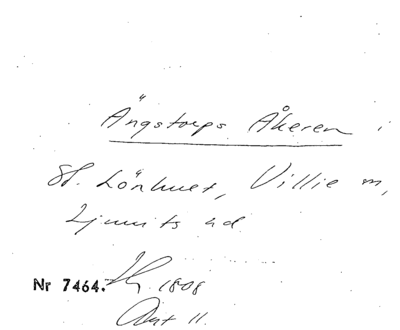 Ängstorps Åkeren
St. Lönhult, Villie m,
Ljunits hd
Nr 7464. 1808
Akt 11.